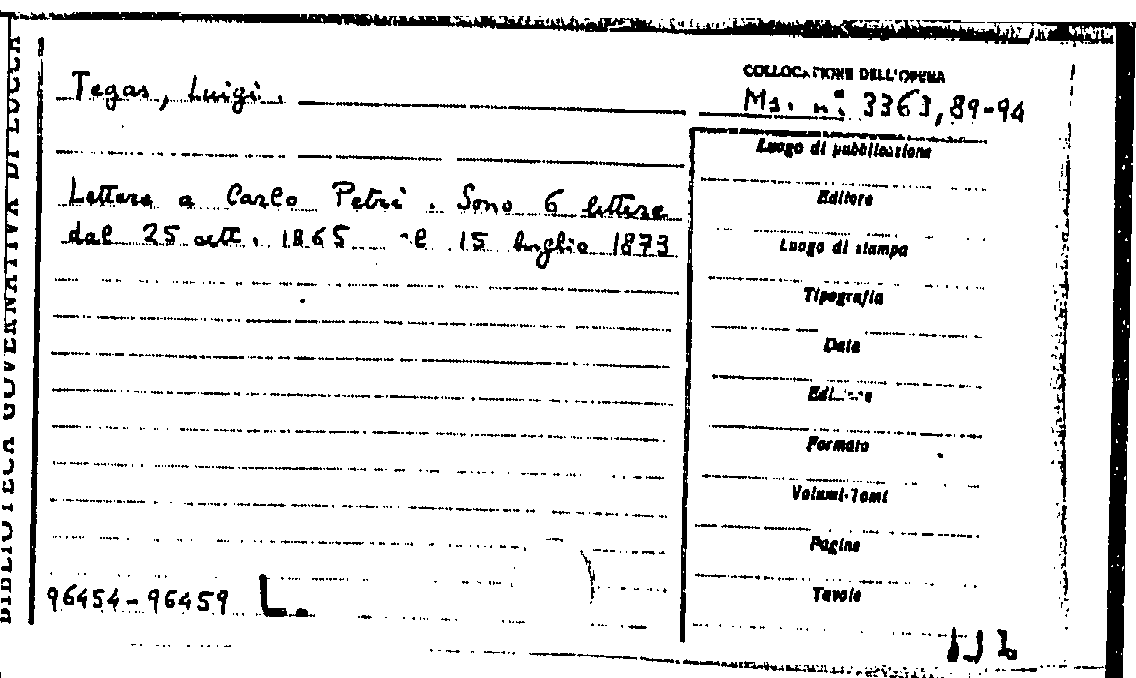 BIBLIOTECA GOVERNATIVA DI LUCCA
COLLOCAZIONE DELL'OPERA
Tegas, Luigi.
Ms. n° 3363, 89-94
Lettere a Carlo Petri. Sono 6 lettere
dal 25 ott. 1865 al 15 luglio 1873
Luogo di pubblicazione
Editore
Luogo di stampa
Tipografia
Data
Edizione
Formato
Volumi-Tomi
Pagine
Tavole
96454-96459 L.